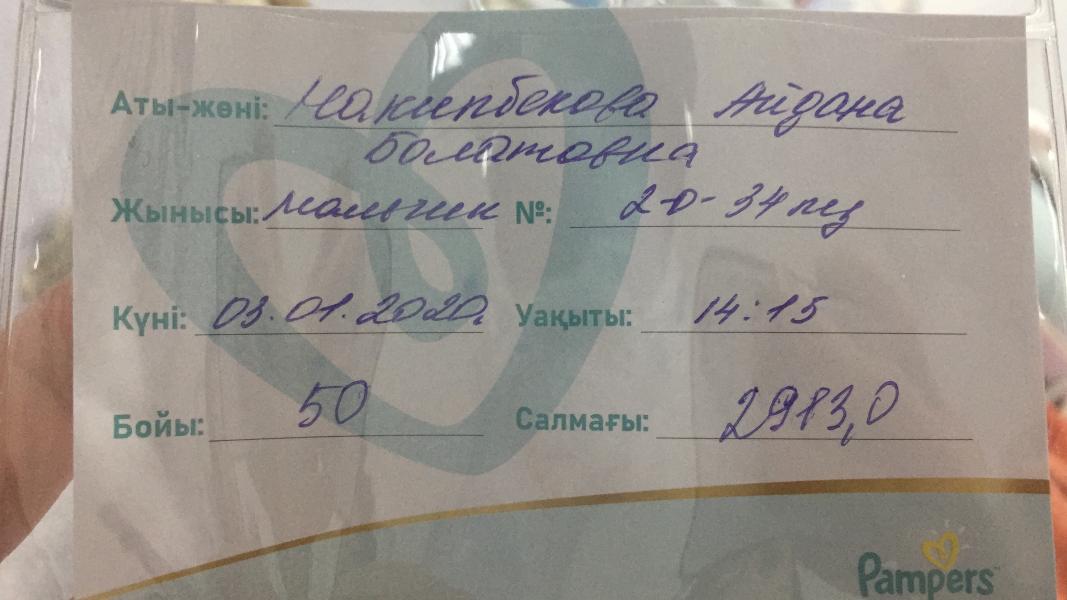 Аты-жөні: Накипбекова Айдана
Болатовна
Жынысы: мальчик №: 2-0-34 нед
Күні: 03.01.2020. Уақыты: 14:15
Бойы: 50 Салмағы: 2983,0
Pampers